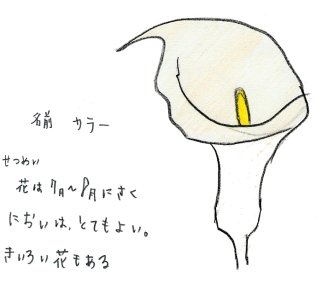 名前 カラー
せつめい
花は7月～8月にさく
においは、とてもよい。
きいろい花もある